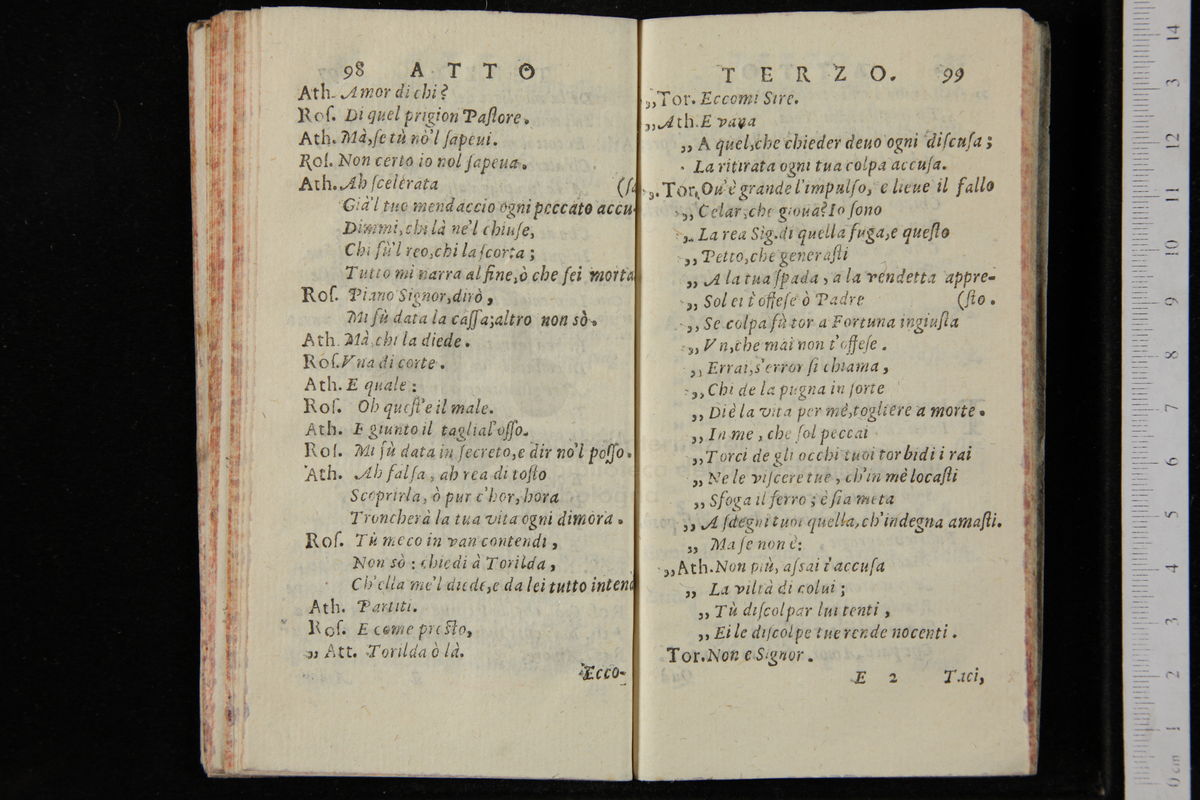 98 ATTO
Ath. Amor di chi?
Roſ. Di quel prigion Paſtore.
Ath. Mà, ſe tù nò'l ſapeui.
Roſ. Non certo io nol ſapeua.
Ath. Ah ſcelerata (ſa
Già'l tuo mendaccio ogni peccato accu-
Dimmi, chi là ne'l chiuſe,
Chi fù'l reo, chi la ſcorta;
Tutto mi narra al fine, ò che ſei morta
Roſ. Piano Signor, dirò,
Mi fù data la caſſa; altro non sò.
Ath. Mà, chi la diede.
Roſ. Vna di corte.
Ath. E quale:
Roſ. Oh queſt'e il male.
Ath. E giunto il taglial'oſſo.
Roſ. Mi fù data in ſecreto, e dir nò'l poſſo.
Ath. Ah falſa, ah rea di toſto
Scoprirla, ò pur c'hor, hora
Troncherà la tua vita ogni dimora.
Roſ. Tù meco in van contendi,
Non sò: chiedi à Torilda,
Ch'ella me'l diede, e da lei tutto intend
Ath. Partiti.
Roſ. E come preſto,
„ Att. Torilda ò là.
Ecco-
TERZO. 99
„Tor. Eccomi Sire.
„Ath. E vana
„ A quel, che chieder deuo ogni diſcuſa;
La ritirata ogni tua colpa accuſa.
„.Tor. Ou'è grande l'impulſo, e lieue il fallo
„ Celar, che gioua? Io ſono
„ La rea Sig. di quella fuga, e queſto
„ Petto, che generaſti
„ A la tua ſpada, a la vendetta appre-
„ Sol ei t'offeſe ò Padre (ſto.
„ Se colpa fù tor a Fortuna ingiuſta
„ Vn, che mai non t'offeſe.
„ Errai, s'error ſi chiama,
„ Chi de la pugna in ſorte
„ Diè la vita per mè, togliere a morte.
„ In me, che ſol peccai
„ Torci de gli occhi tuoi torbidi i rai
„ Ne le viſcere tue, ch'in mè locaſti
„ Sfoga il ferro; e ſia meta
„ A ſdegni tuoi quella, ch'indegna amaſti.
„ Ma ſe non è:
„Ath. Non più, aſsai t'accuſa
„ La viltà di colui;
„ Tù diſcolpar lui tenti,
„ Ei le diſcolpe tue rende nocenti.
Tor. Non e Signor.
E 2 Taci,